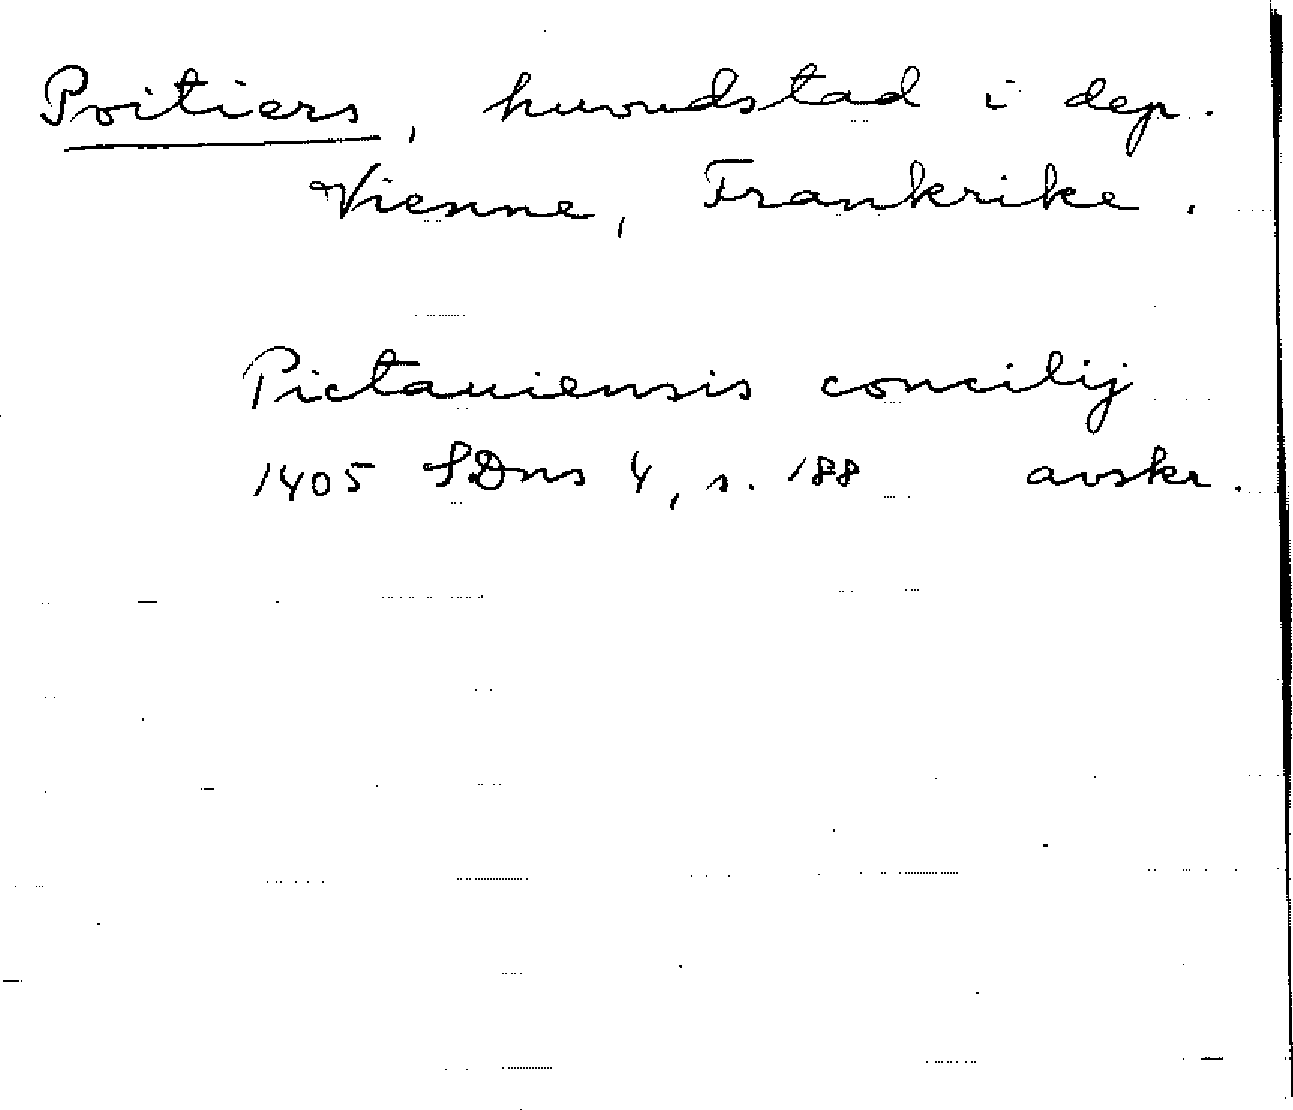 Poitiers, huvudstad i dep.
Vienne, Frankrike.
Pictauiensis concilij
1405 SDns 4, s. 188 avskr.